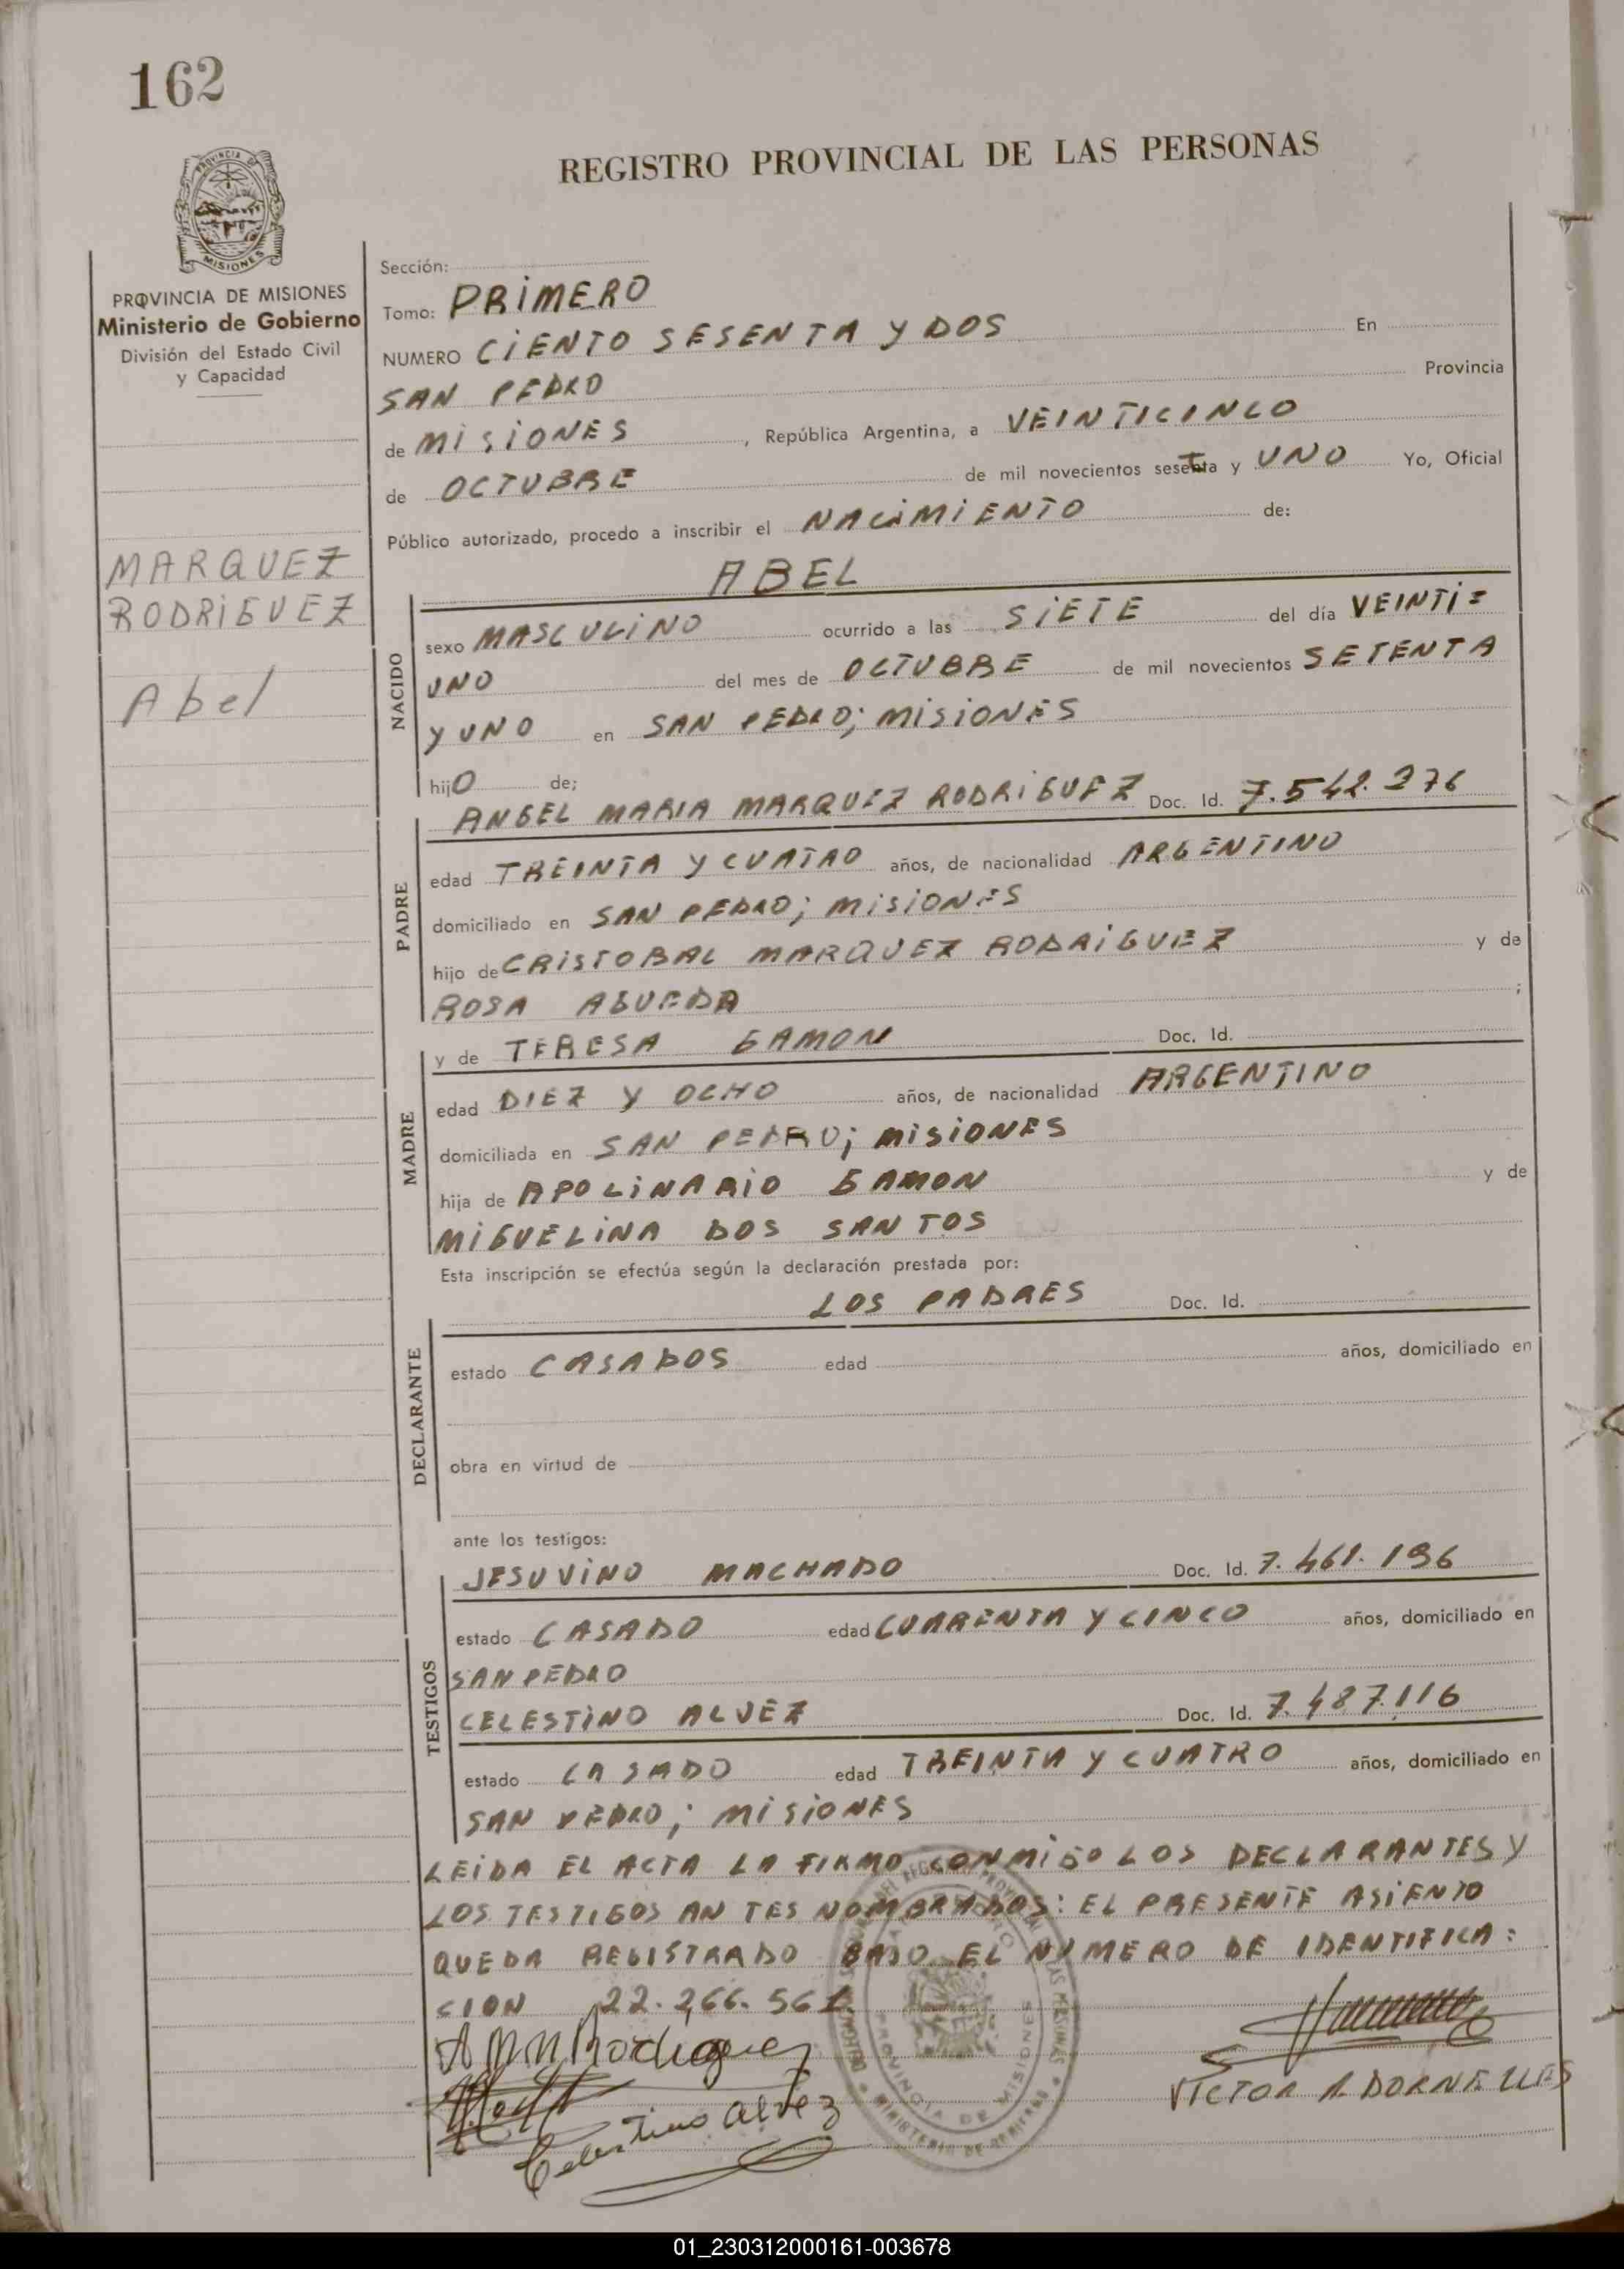 162
REGISTRO PROVINCIAL DE LAS PERSONAS
PROVINCIA DE
MISIONES
PROVINCIA DE MISIONES
Ministerio de Gobierno
División del Estado Civil
y Capacidad
MARQUEZ
RODRIGUEZ
Abel
Sección:
Tomo: PRIMERO
NUMERO CIENTO SESENTA Y DOS En
SAN PEDRO Provincia
de MISIONES, República Argentina, a VEINTICINCO
de OCTUBRE de mil novecientos setenta y UNO Yo, Oficial
Público autorizado, procedo a inscribir el NACIMIENTO de:
ABEL
NACIDO
sexo MASCULINO ocurrido a las SIETE del día VEINTI=
UNO del mes de OCTUBRE de mil novecientos SETENTA
Y UNO en SAN PEDRO; MISIONES
hijO de;
ANGEL MARIA MARQUEZ RODRIGUEZ Doc. Id. 7.542.276
PADRE
edad TREINTA Y CUATRO años, de nacionalidad ARGENTINO
domiciliado en SAN PEDRO; MISIONES
hijo de CRISTOBAL MARQUEZ RODRIGUEZ y de
ROSA AGUEDA ;
y de TERESA GAMON Doc. Id.
MADRE
edad DIEZ Y OCHO años, de nacionalidad ARGENTINO
domiciliada en SAN PEDRO; MISIONES
hija de APOLINARIO GAMON y de
MIGUELINA DOS SANTOS
Esta inscripción se efectúa según la declaración prestada por:
LOS PADRES Doc. Id.
DECLARANTE
estado CASADOS edad años, domiciliado en
obra en virtud de
ante los testigos:
JESUVINO MACHADO Doc. Id. 7.461.196
TESTIGOS
estado CASADO edad CUARENTA Y CINCO años, domiciliado en
SAN PEDRO
CELESTINO ALVEZ Doc. Id. 7.487.116
estado CASADO edad TREINTA Y CUATRO años, domiciliado en
SAN PEDRO; MISIONES
LEIDA EL ACTA LA FIRMO CONMIGO LOS DECLARANTES Y
LOS TESTIGOS ANTES NOMBRADOS: EL PRESENTE ASIENTO
QUEDA REGISTRADO BAJO EL NUMERO DE IDENTIFICA:
CION 22.266.561.
Rodriguez
Celestino alvez
VICTOR A DORNELLES
PROVINCIA DE MISIONES
MINISTERIO DE GOBIERNO
01_230312000161-003678